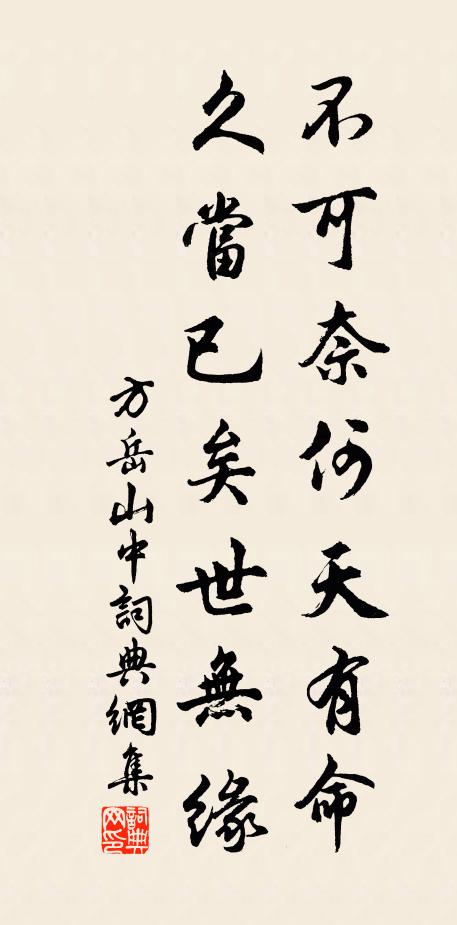 不可奈何天有命
久當已矣世無緣
方岳山中詞典網集
詞典
网印